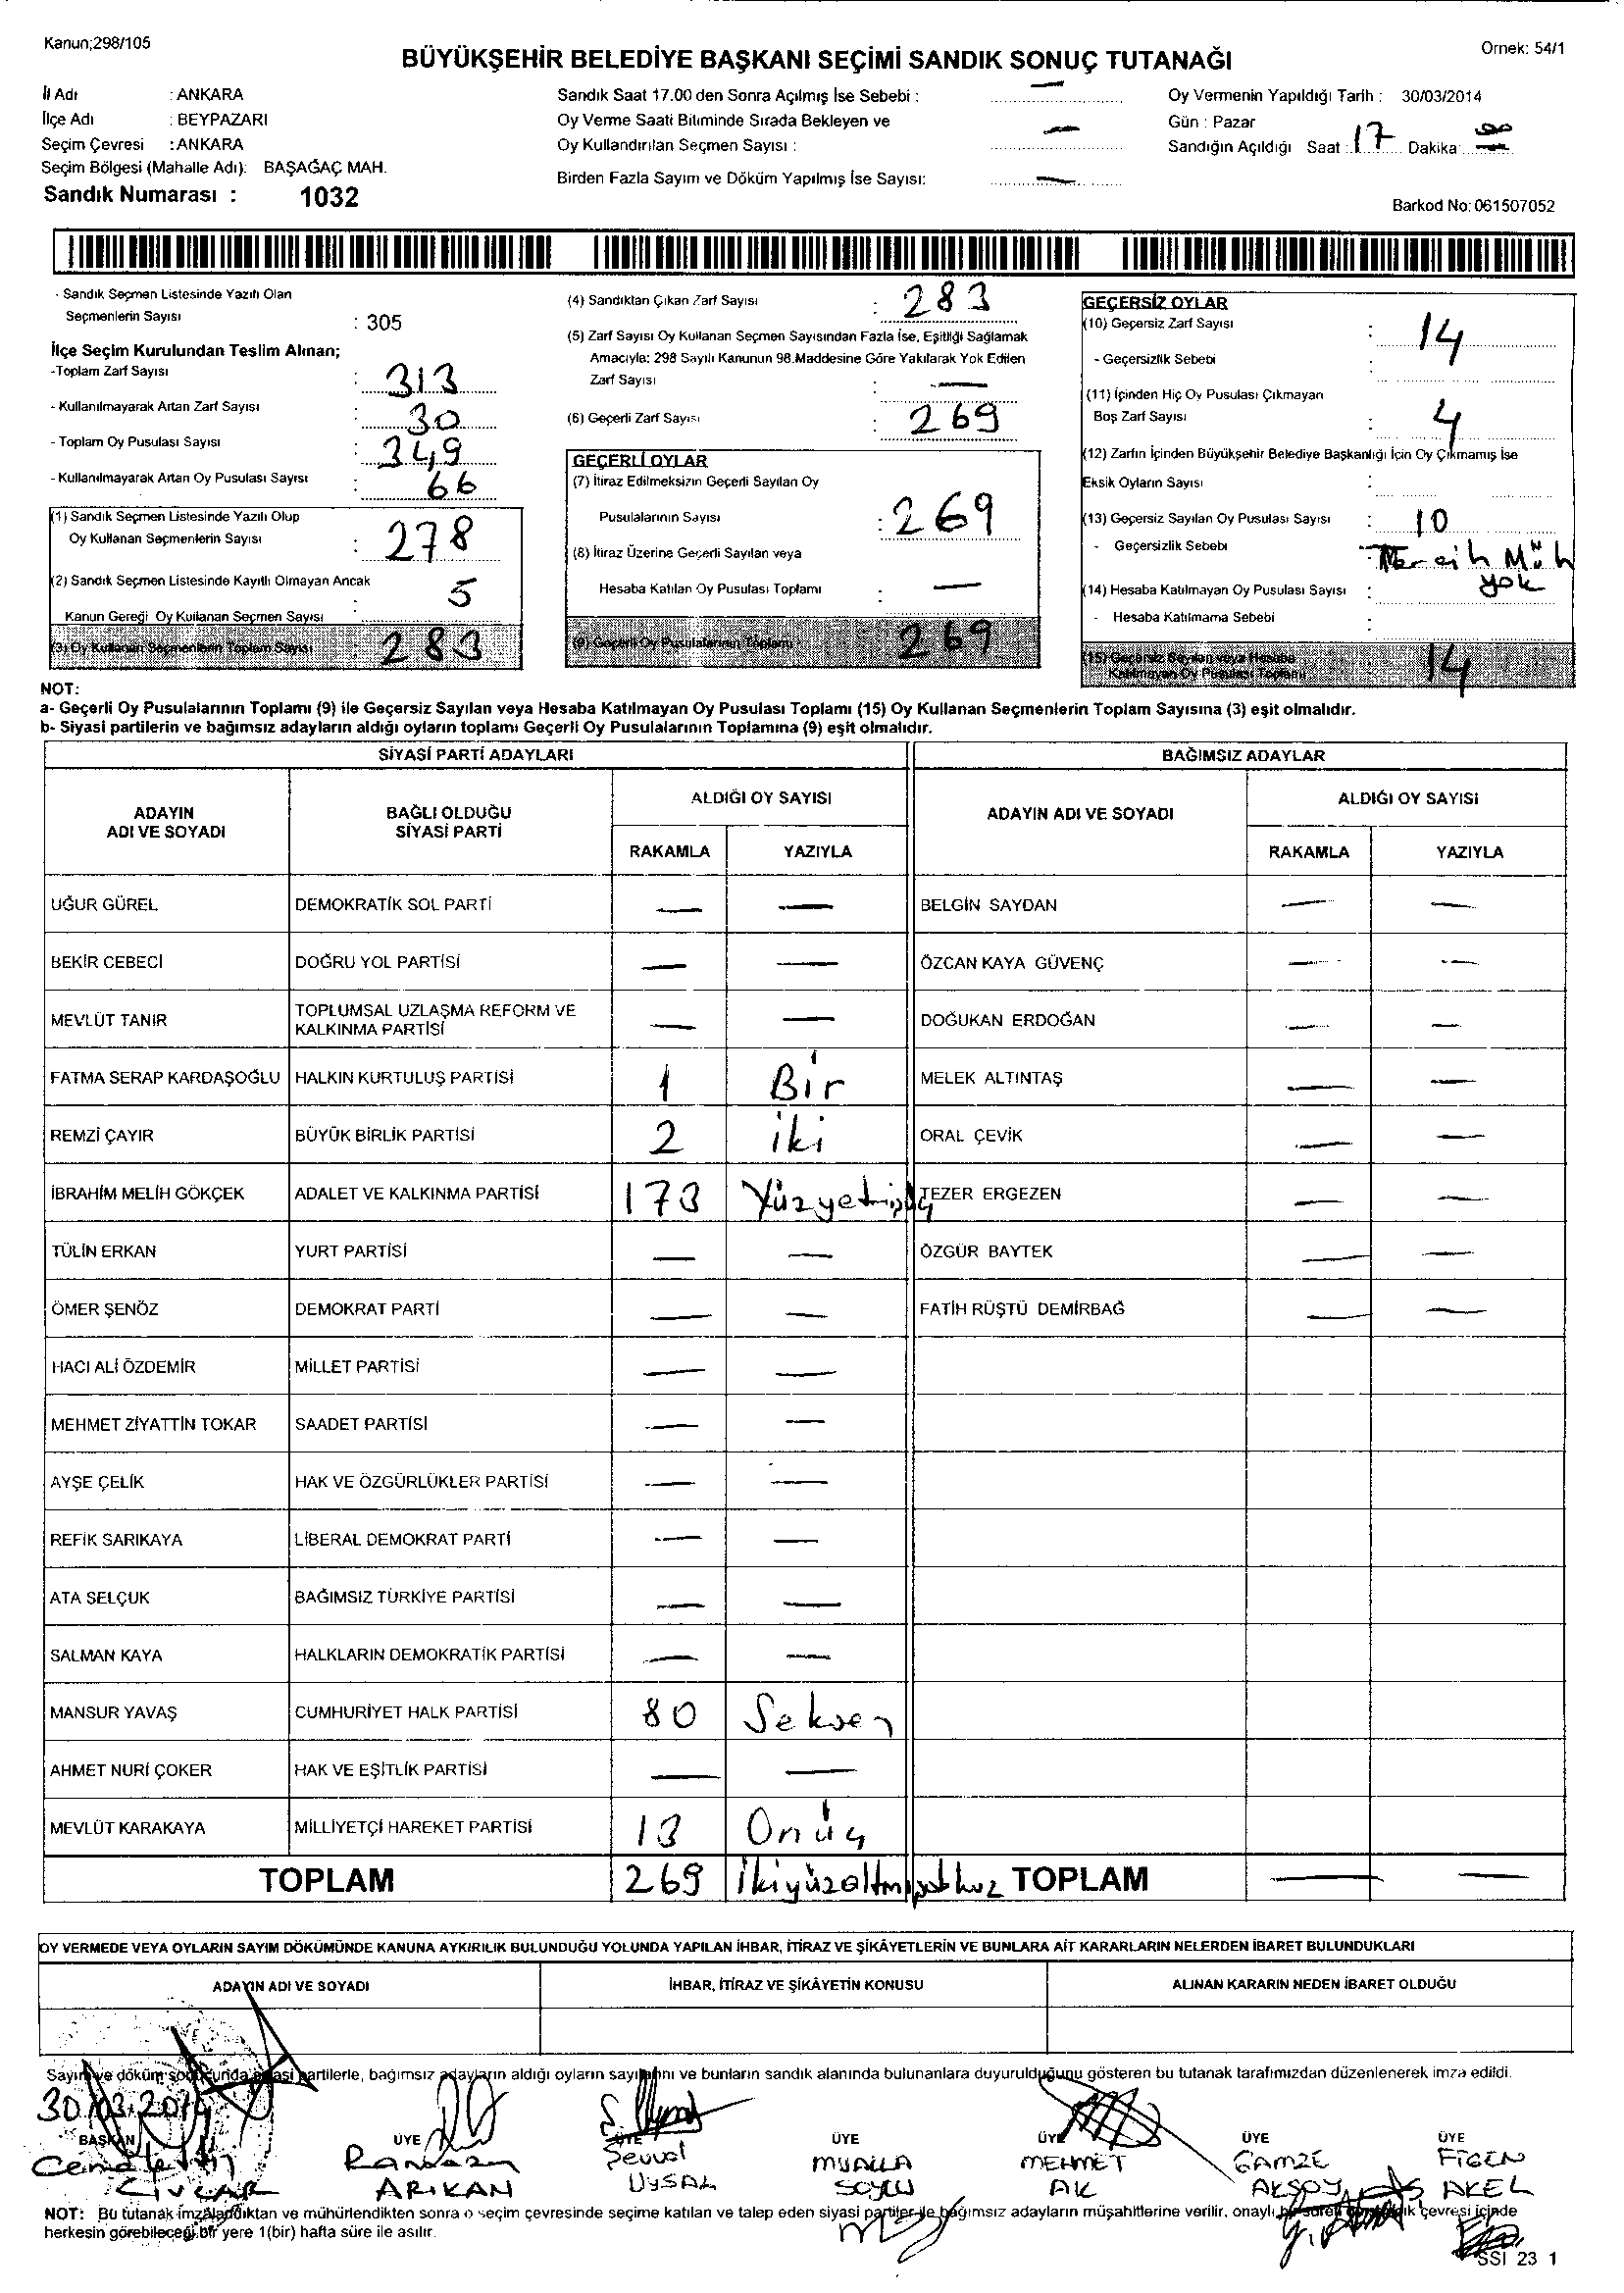 Kanun;298/105
Ornek: 54/1
BÜYÜKŞEHİR BELEDİYE BAŞKANI SEÇİMİ SANDIK SONUÇ TUTANAĞI
İl Adı : ANKARA
İlçe Adı : BEYPAZARI
Seçim Çevresi : ANKARA
Seçim Bölgesi (Mahalle Adı): BAŞAĞAÇ MAH.
Sandık Numarası : 1032
Sandık Saat 17.00 den Sonra Açılmış İse Sebebi : —
Oy Verme Saati Bitiminde Sırada Bekleyen ve
Oy Kullandırılan Seçmen Sayısı : —
Birden Fazla Sayım ve Döküm Yapılmış İse Sayısı: —
Oy Vermenin Yapıldığı Tarih : 30/03/2014
Gün : Pazar
Sandığın Açıldığı Saat : 17 Dakika : 00
Barkod No: 061507052
- Sandık Seçmen Listesinde Yazılı Olan
Seçmenlerin Sayısı : 305
İlçe Seçim Kurulundan Teslim Alınan;
-Toplam Zarf Sayısı : 313
- Kullanılmayarak Artan Zarf Sayısı : 30
- Toplam Oy Pusulası Sayısı : 349
- Kullanılmayarak Artan Oy Pusulası Sayısı : 66
(1) Sandık Seçmen Listesinde Yazılı Olup
Oy Kullanan Seçmenlerin Sayısı : 278
(2) Sandık Seçmen Listesinde Kayıtlı Olmayan Ancak
Kanun Gereği Oy Kullanan Seçmen Sayısı : 5
(3) Oy Kullanan Seçmenlerin Toplam Sayısı : 283
(4) Sandıktan Çıkan Zarf Sayısı : 283
(5) Zarf Sayısı Oy Kullanan Seçmen Sayısından Fazla İse, Eşitliği Sağlamak
Amacıyla; 298 Sayılı Kanunun 98.Maddesine Göre Yakılarak Yok Edilen
Zarf Sayısı : —
(6) Geçerli Zarf Sayısı : 269
GEÇERLİ OYLAR
(7) İtiraz Edilmeksizin Geçerli Sayılan Oy
Pusulalarının Sayısı : 269
(8) İtiraz Üzerine Geçerli Sayılan veya
Hesaba Katılan Oy Pusulası Toplamı : —
(9) Geçerli Oy Pusulalarının Toplamı : 269
GEÇERSİZ OYLAR
(10) Geçersiz Zarf Sayısı : 14
- Geçersizlik Sebebi :
(11) İçinden Hiç Oy Pusulası Çıkmayan
Boş Zarf Sayısı : 4
(12) Zarfın İçinden Büyükşehir Belediye Başkanlığı İçin Oy Çıkmamış İse
Eksik Oyların Sayısı :
(13) Geçersiz Sayılan Oy Pusulası Sayısı : 10
- Geçersizlik Sebebi : Tercih Müh
yok
(14) Hesaba Katılmayan Oy Pusulası Sayısı :
- Hesaba Katılmama Sebebi :
(15) Geçersiz Sayılan veya Hesaba
Katılmayan Oy Pusulası Toplamı 14
NOT:
a- Geçerli Oy Pusulalarının Toplamı (9) ile Geçersiz Sayılan veya Hesaba Katılmayan Oy Pusulası Toplamı (15) Oy Kullanan Seçmenlerin Toplam Sayısına (3) eşit olmalıdır.
b- Siyasi partilerin ve bağımsız adayların aldığı oyların toplamı Geçerli Oy Pusulalarının Toplamına (9) eşit olmalıdır.
SİYASİ PARTİ ADAYLARI BAĞIMSIZ ADAYLAR
ADAYIN ADI VE SOYADI BAĞLI OLDUĞU SİYASİ PARTİ ALDIĞI OY SAYISI ADAYIN ADI VE SOYADI ALDIĞI OY SAYISI
RAKAMLA YAZIYLA RAKAMLA YAZIYLA
UĞUR GÜREL DEMOKRATİK SOL PARTİ — — BELGİN SAYDAN — —
BEKİR CEBECİ DOĞRU YOL PARTİSİ — — ÖZCAN KAYA GÜVENÇ — —
MEVLÜT TANIR TOPLUMSAL UZLAŞMA REFORM VE KALKINMA PARTİSİ — — DOĞUKAN ERDOĞAN — —
FATMA SERAP KARDAŞOĞLU HALKIN KURTULUŞ PARTİSİ 1 Bir MELEK ALTINTAŞ — —
REMZİ ÇAYIR BÜYÜK BİRLİK PARTİSİ 2 iki ORAL ÇEVİK — —
İBRAHİM MELİH GÖKÇEK ADALET VE KALKINMA PARTİSİ 173 Yüzyetmişüç TEZER ERGEZEN — —
TÜLİN ERKAN YURT PARTİSİ — — ÖZGÜR BAYTEK — —
ÖMER ŞENÖZ DEMOKRAT PARTİ — — FATİH RÜŞTÜ DEMİRBAĞ — —
HACI ALİ ÖZDEMİR MİLLET PARTİSİ — —
MEHMET ZİYATTİN TOKAR SAADET PARTİSİ — —
AYŞE ÇELİK HAK VE ÖZGÜRLÜKLER PARTİSİ — —
REFİK SARIKAYA LİBERAL DEMOKRAT PARTİ — —
ATA SELÇUK BAĞIMSIZ TÜRKİYE PARTİSİ — —
SALMAN KAYA HALKLARIN DEMOKRATİK PARTİSİ — —
MANSUR YAVAŞ CUMHURİYET HALK PARTİSİ 80 Seksen
AHMET NURİ ÇOKER HAK VE EŞİTLİK PARTİSİ — —
MEVLÜT KARAKAYA MİLLİYETÇİ HAREKET PARTİSİ 13 Onüç
TOPLAM 269 İkiyüzaltmışdokuz TOPLAM — —
OY VERMEDE VEYA OYLARIN SAYIM DÖKÜMÜNDE KANUNA AYKIRILIK BULUNDUĞU YOLUNDA YAPILAN İHBAR, İTİRAZ VE ŞİKÂYETLERİN VE BUNLARA AİT KARARLARIN NELERDEN İBARET BULUNDUKLARI
ADAYIN ADI VE SOYADI İHBAR, İTİRAZ VE ŞİKÂYETİN KONUSU ALINAN KARARIN NEDEN İBARET OLDUĞU
Sayım ve döküm sonucunda siyasi partilerle, bağımsız adayların aldığı oyların sayılarını ve bunların sandık alanında bulunanlara duyurulduğunu gösteren bu tutanak tarafımızdan düzenlenerek imza edildi.
30/03/2014
BAŞKAN ÜYE ÜYE ÜYE ÜYE ÜYE ÜYE
Cemalettin Ramazan Sevval MUALLA MEHMET GAMZE FİGEN
CİVCAR ARIKAN UYSAL SOYLU AK AKSOY AKEL
NOT: Bu tutanak imzalandıktan ve mühürlendikten sonra o seçim çevresinde seçime katılan ve talep eden siyasi partiler ile bağımsız adayların müşahitlerine verilir, onaylı bir sureti de sandık çevresi içinde
herkesin görebileceği bir yere 1(bir) hafta süre ile asılır.
SSI 23 1